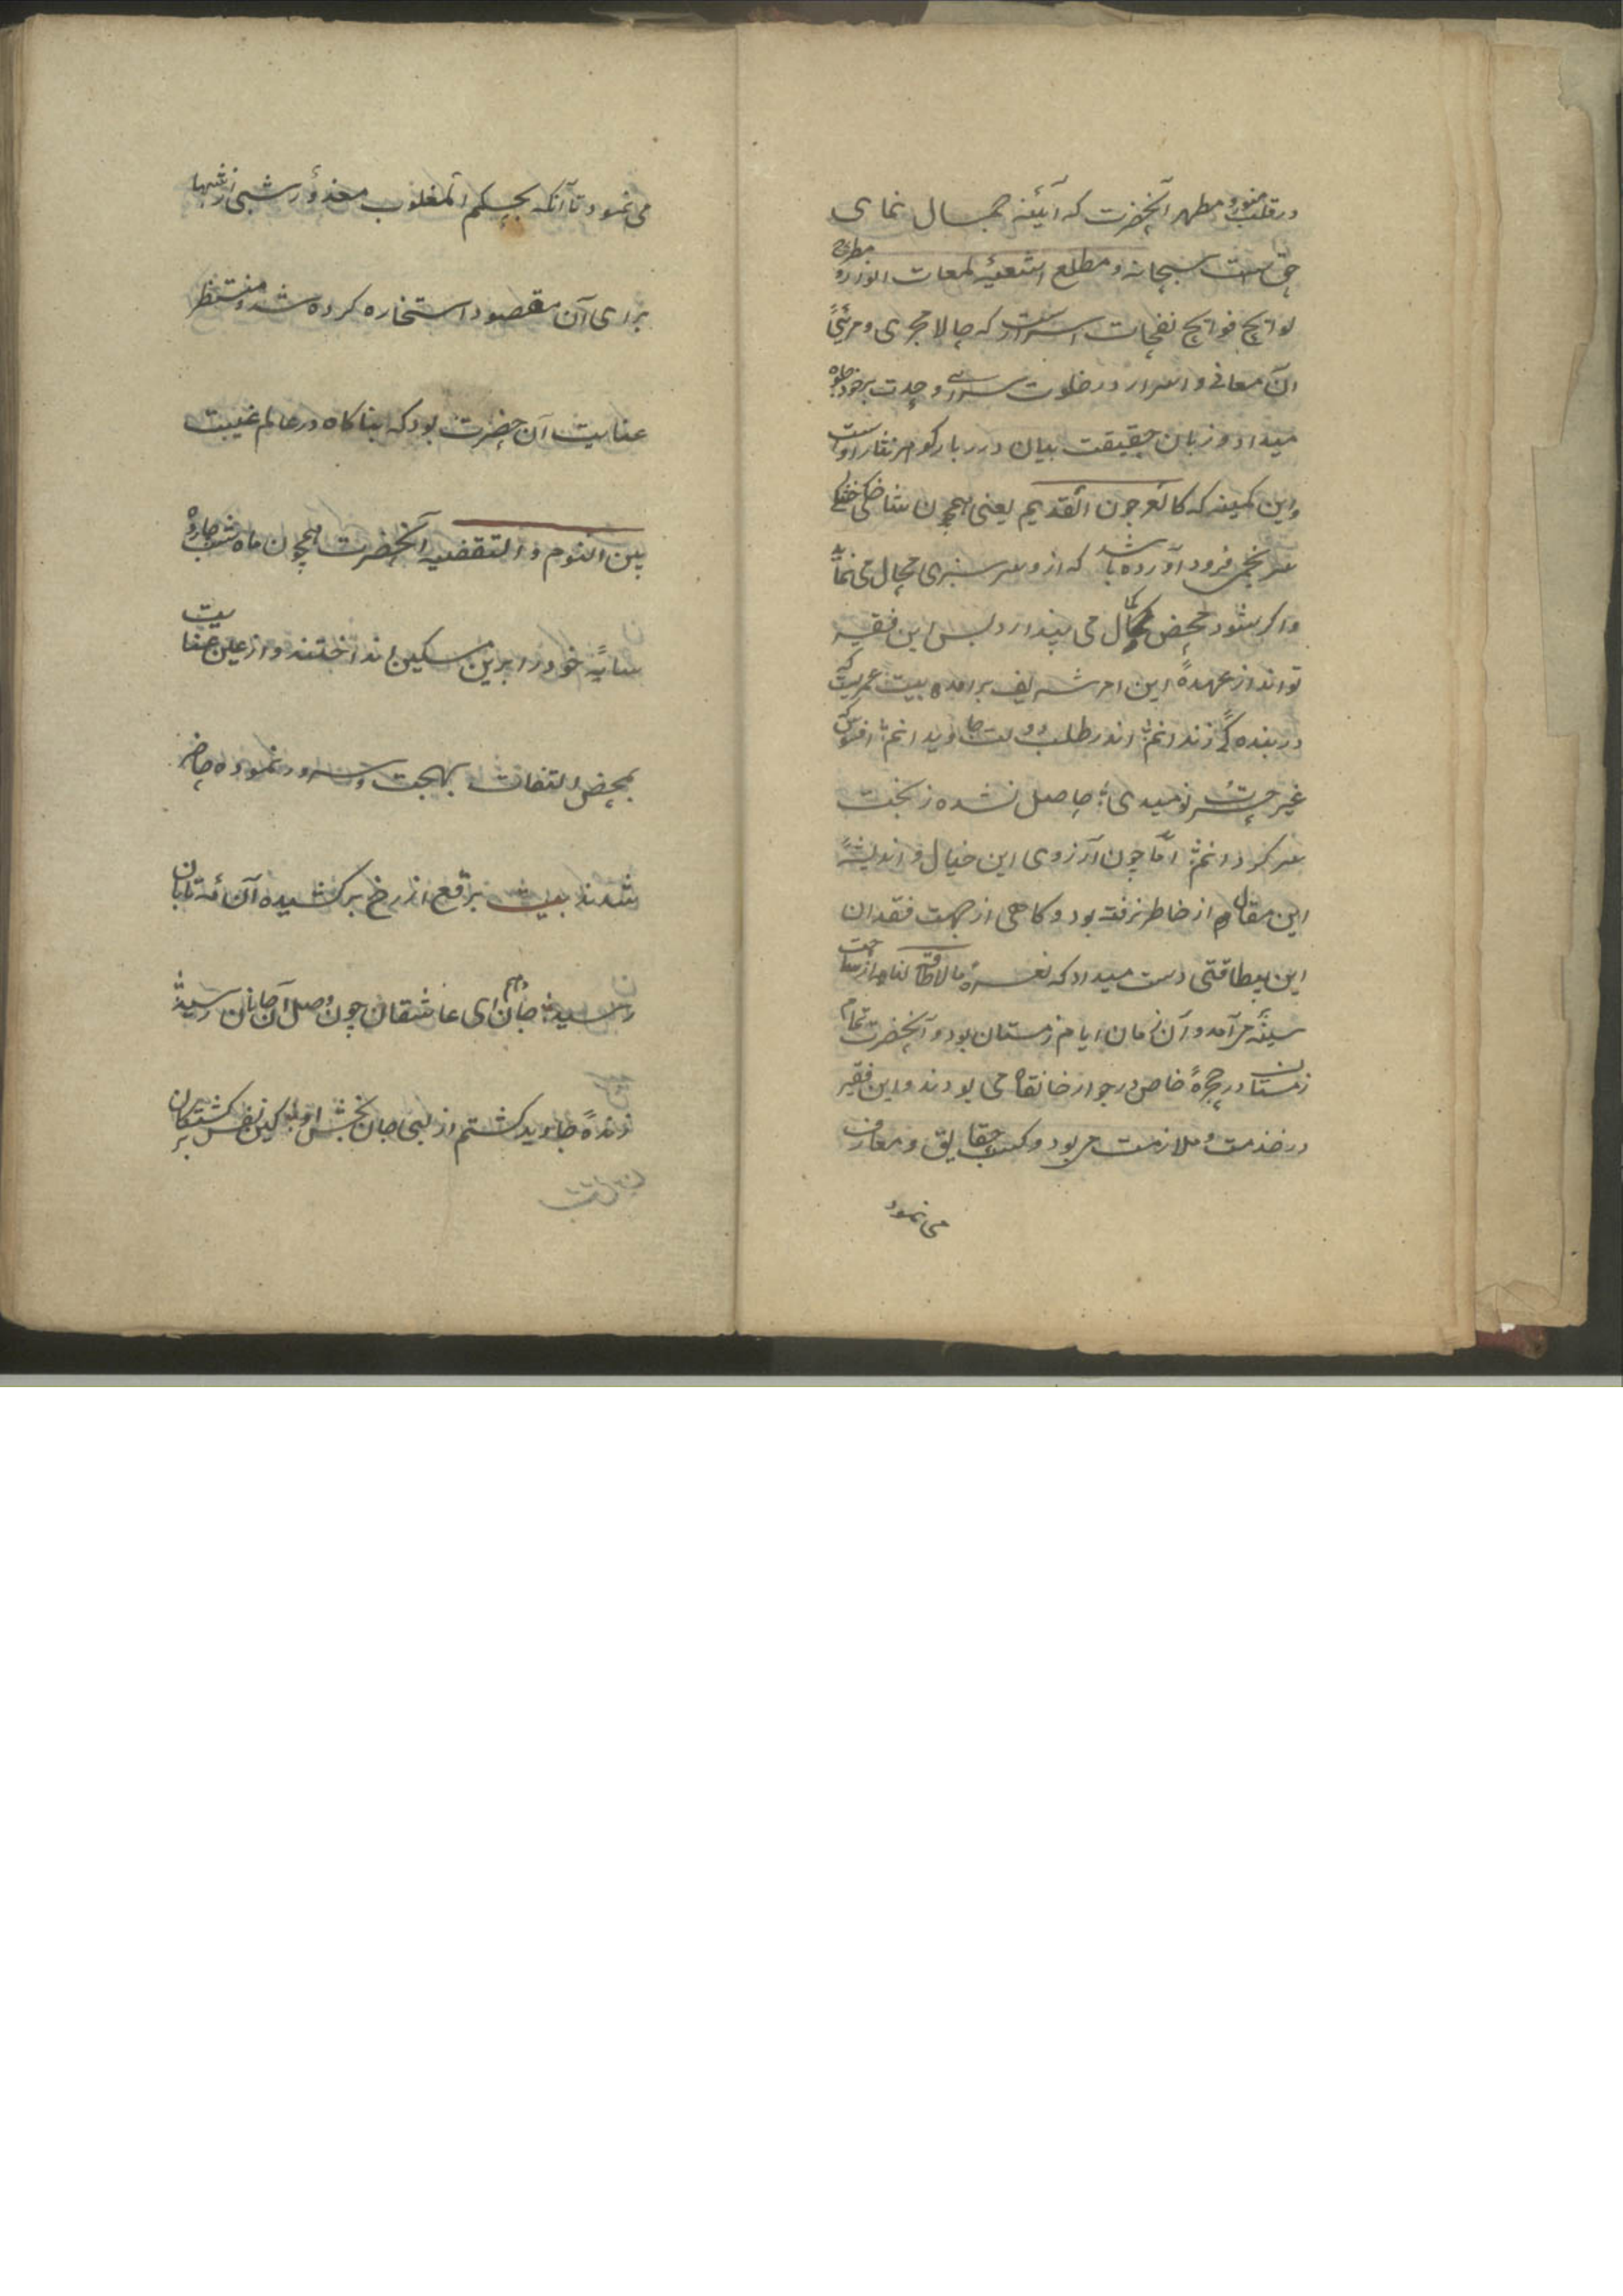 در قلب منور و مطهر آنحضرت که آیینه جمال نمای
حق است سبحانه و مطلع اشعیه لمعات انوار و مطرح
لوایح فوایح نفحات اسرار است که حالا مجری و مرئی
آن معانی و اسرار در خلوت سرای وحدت برخود جلوه
میداد و زبان حقیقت بیان درربار گوهرنثار اوست
و این کمینه که کالعرجون القدیم یعنی همچون شاخکی خشکی
سر بخم فرود آورده باشد که ازو سرسبزی محال می نماید
و اگر شود محض کمال می پندارد بس این فقیر
تواند از عهدهٔ این امر شریف برآمده بیت عمریست که
در بنده گی زندانم اندر طلب دولت جاویدانم افسوس که
غیر حسرت نومیدی حاصل نشده ز بخت
سرگردانم اما چون آرزوی این خیال و اندیشهٔ
این مقال از خاطر نرفته بود و کاهی از جهت فقدان
این بیطاقتی دست میداد که نعرهٔ مالاطاقة لنا به از ساحت
سینه برآمد و آن زمان ایام زمستان بود و آنحضرت تمام
زمستان در حجرهٔ خاص در جوار خانقاه می بودند و این فقیر
در خذمت و ملازمت می بود و کسب حقایق و معارف
می نمود
می نمود تا آنکه بحکم المغلوب معذور شبی از شبها
برای آن مقصود استخاره کرده شد و منتظر
عنایت آن حضرت بود که بناکاه در عالم غیبت
بین النوم و الیقضه آنحضرت همچون ماه شب چارده
سایهٔ خود را برین مسکین انداختند و از عین عنایت
بمحض التفات بهجت و سرور نموده حاضر
شدند بیت برقع از رخ برکشیده آن مه تابان
رسید جان دهم ای عاشقان چون وصل آن جانان رسید
زندهٔ جاوید کشتم از لبی جان بخش او کین نفس بر کشتکان